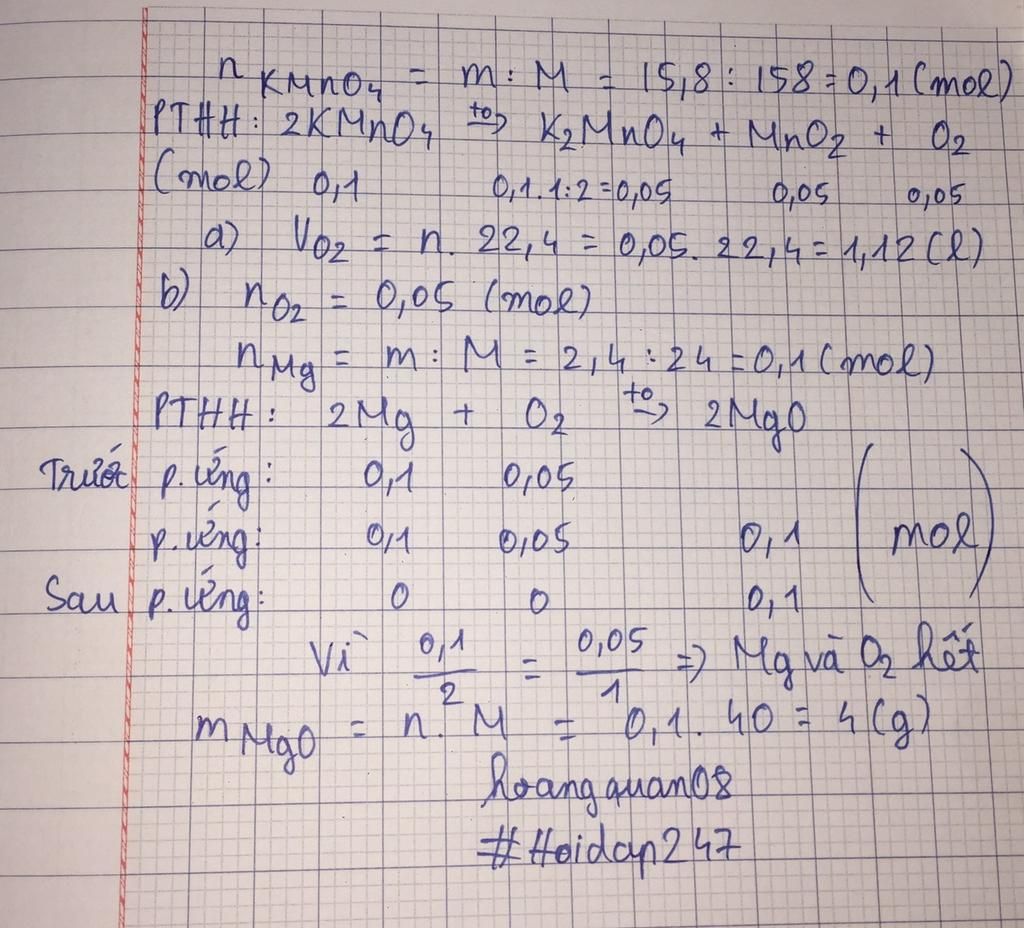 n KMnO4 = m : M = 15,8 : 158 = 0,1 (mol)
PTHH: 2KMnO4 to→ K2MnO4 + MnO2 + O2
(mol) 0,1 0,1.1:2=0,05 0,05 0,05
a) VO2 = n. 22,4 = 0,05. 22,4 = 1,12 (l)
b) nO2 = 0,05 (mol)
nMg = m : M = 2,4 : 24 = 0,1 (mol)
PTHH: 2Mg + O2 to→ 2MgO
Trước p.ứng: 0,1 0,05
p.ứng: 0,1 0,05 0,1 (mol)
Sau p.ứng: 0 0 0,1
Vì 0,1/2 = 0,05/1 => Mg và O2 hết
mMgO = n. M = 0,1. 40 = 4 (g)
hoangquan08
#Hoidap247